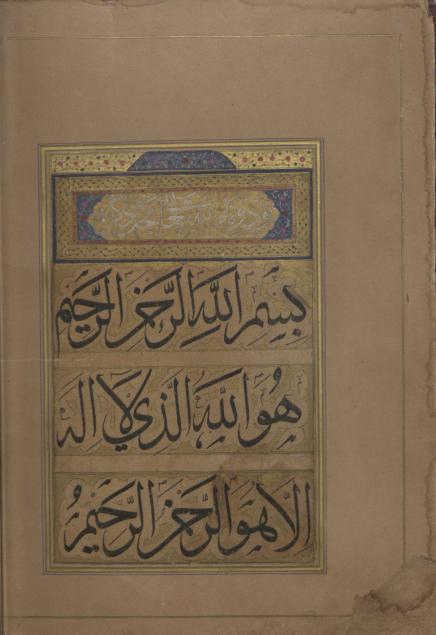 بِسْمِ اللَّهِ الرَّحْمٰنِ الرَّحِيمِ
هُوَ اللَّهُ الَّذِي لَا إِلٰهَ
إِلَّا هُوَ الرَّحْمٰنُ الرَّحِيمُ